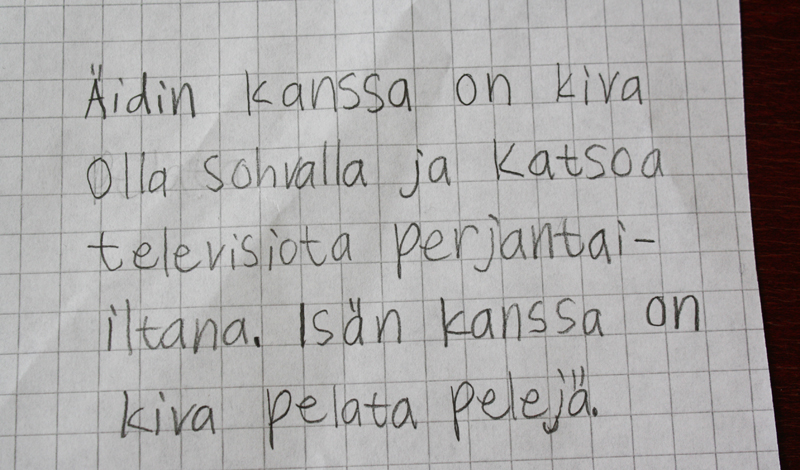 Äidin kanssa on kiva
Olla sohvalla ja katsoa
televisiota perjantai-
iltana. Isän kanssa on
kiva pelata pelejä.